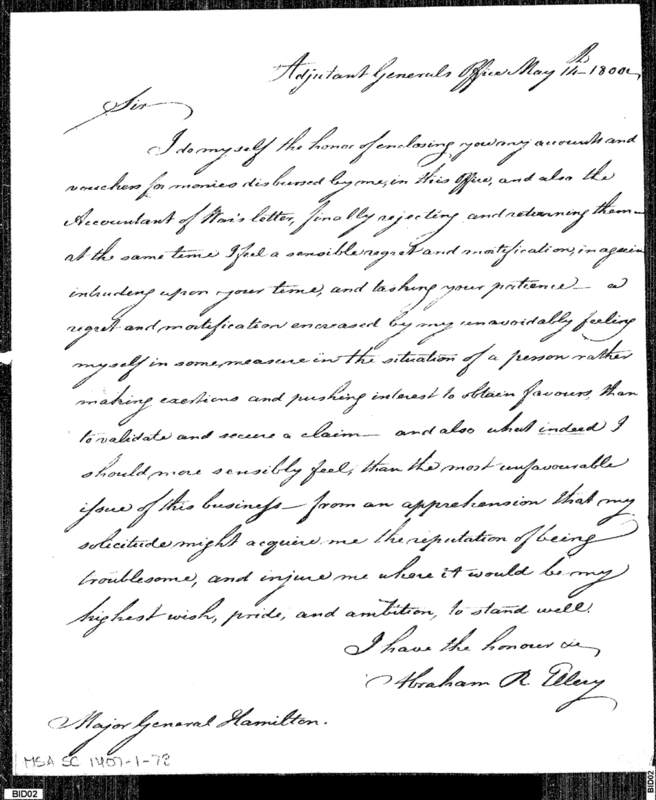 Adjutant Generals Office May 14th 1800
Sir
I do myself the honor of enclosing you my accounts and
vouchers for monies disbursed by me, in this Office, and also the
Accountant of War's letter, finally rejecting and returning them—
at the same time I feel a sensible regret and mortification, in again
intruding upon your time, and tasking your patience— a
regret and mortification encreased by my unavoidably feeling
myself in some measure in the situation of a person rather
making exertions and pushing interest to obtain favours, than
to validate and secure a claim— and also what indeed I
should more sensibly feel, than the most unfavourable
issue of this business— from an apprehension that my
solicitude might acquire me the reputation of being
troublesome, and injure me where it would be my
highest wish, pride, and ambition, to stand well.
I have the honour &c
Abraham R. Ellery
Major General Hamilton.
MSA SC 1407-1-73
BID02
BID02